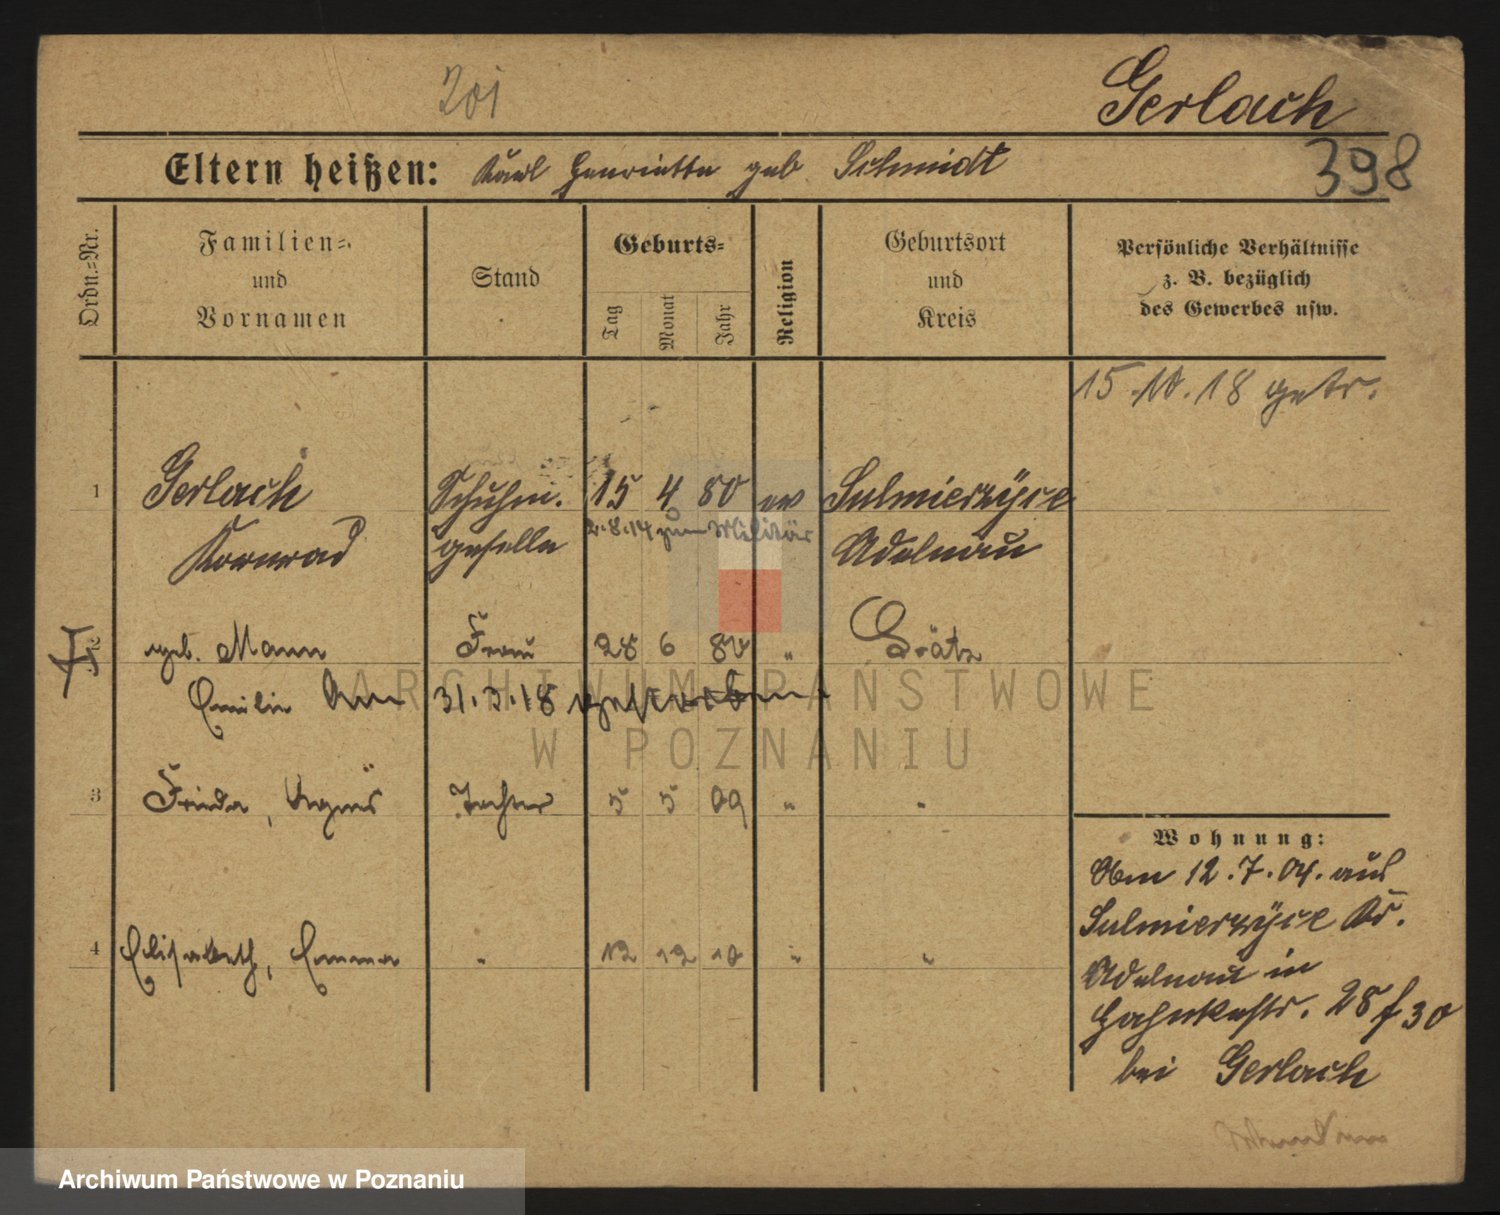 201
Gerlach
398
Eltern heißen: Karl Henriette geb Schmidt
Ordn.=Nr.
Familien=
und
Vornamen
Stand
Geburts=
Tag
Monat
Jahr
Religion
Geburtsort
und
Kreis
Persönliche Verhältnisse
z. B. bezüglich
des Gewerbes usw.
15.10.18 getr.
1 Gerlach Schuhm. 15 4 80 ev Sulmierzyce
Konrad geselle 2.8.14 zum Militär Adelnau
geb. Mann Frau 28 6 80 " Grätz
Emilie Ann 31.3.18 gestorben
3 Frieda, Agnes Tochter 5 5 09 " "
4 Elisabeth, Emma " 12 12 10 " "
Wohnung:
Am 12.7.04. aus
Sulmierzyce Kr.
Adelnau in
28 f 30
bei Gerlach
ARCHIWUM PAŃSTWOWE
W POZNANIU
Archiwum Państwowe w Poznaniu